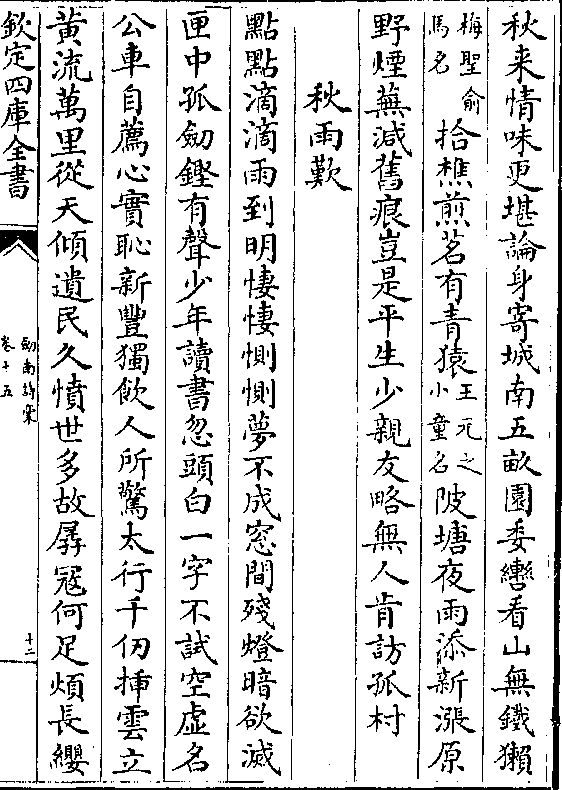 秋来情味更堪論身寄城南五畝園委轡看山無鐵獺
梅聖俞馬名拾樵煎茗有青猿王元之小童名陂塘夜雨添新漲原
野煙蕪減舊痕豈是平生少親友略無人肯訪孤村
秋雨歎
點點滴滴雨到明悽悽惻惻夢不成窓間殘燈暗欲滅
匣中孤劒鏗有聲少年讀書忽頭白一字不試空虛名
公車自薦心實恥新豐獨飲人所驚太行千仞揷雲立
黃流萬里從天傾遺民久憤世多故孱寇何足煩長纓
欽定四庫全書
劒南詩稾
卷十五
十二